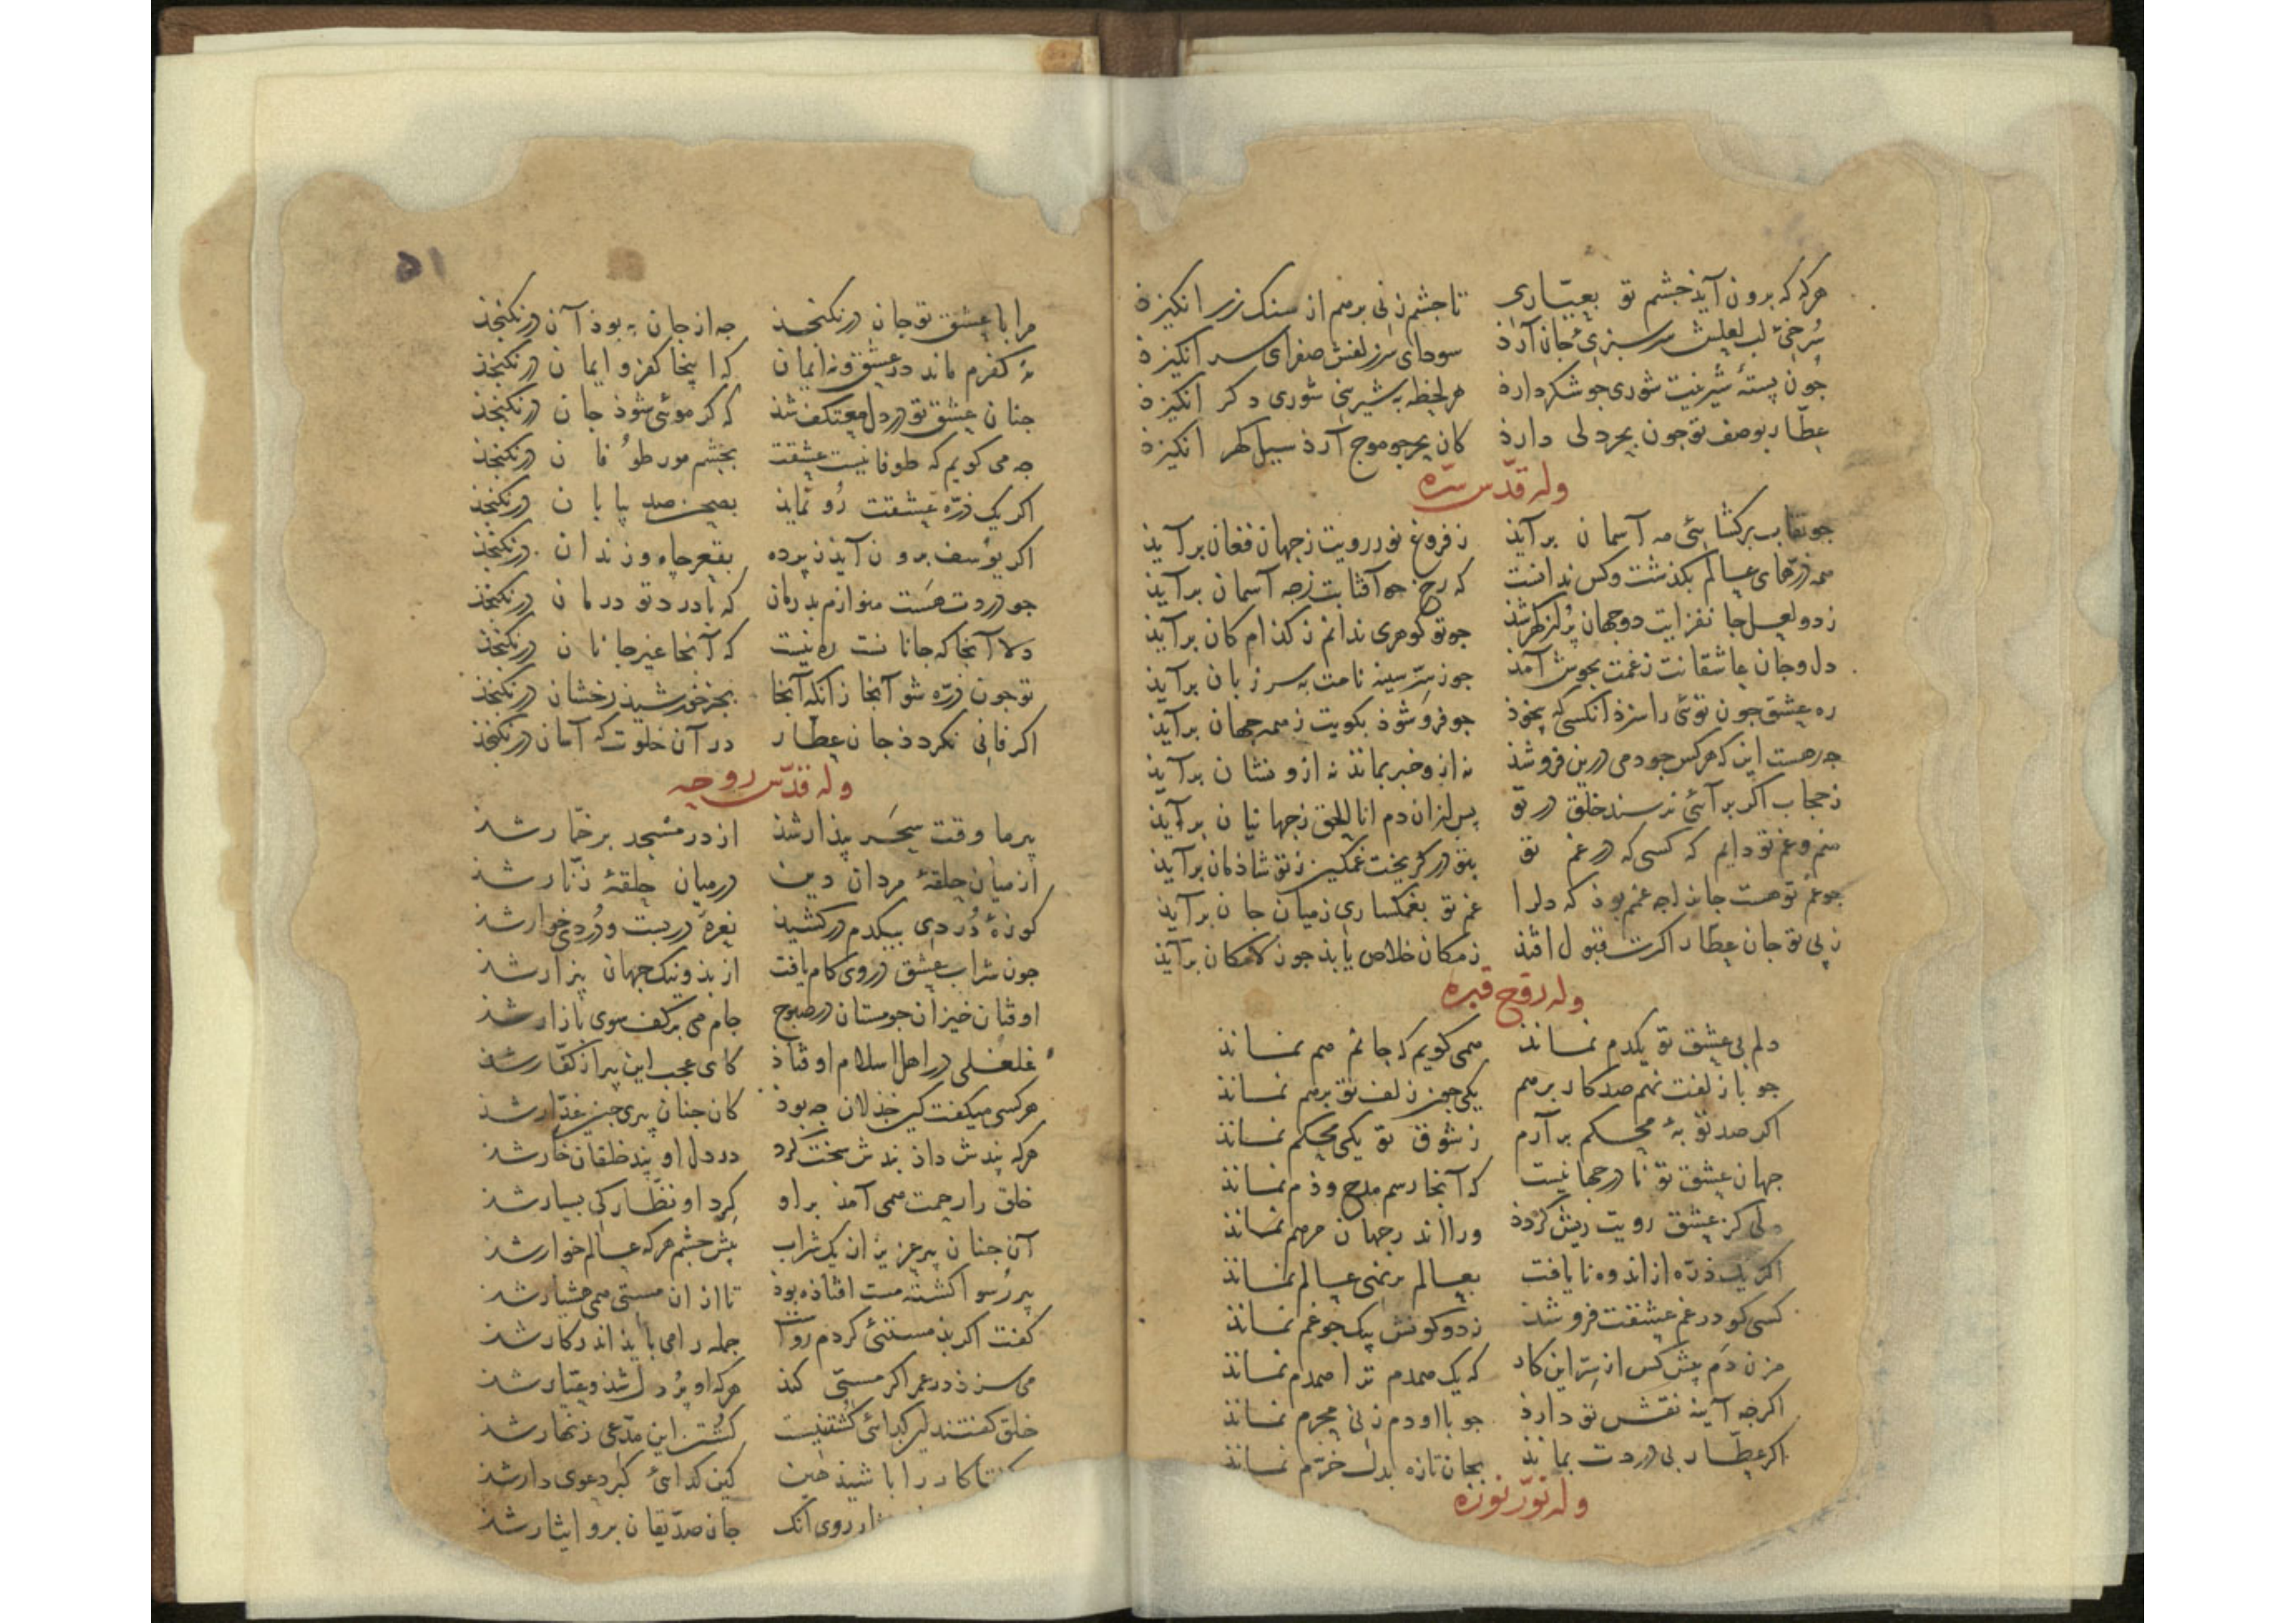 هرکه که برون آید چشم تو بعیّاری تا چشم زنی بر هم از سنک زر انکیزد
سُرخیّ لب لعلش سرسبزیٔ جان آرذ سودای سر زلفش صفرای سر انکیزد
چون پستهٔ شیرینت شوری جو شکر دارد هر لحظه به شیرینی شوری دکر انکیزد
عطّار بوصف تو جون بحر دلی دارذ کان بحر جو موج آرذ سیل کهر انکیزد
وله قدّس سرّه
جو نقاب برکشائی مه آسمان برآیذ ز فروغ نور رویت ز جهان فغان برآیذ
همه دورهای عالم بکذشت و کس ندانست که رخ جو آفتابت ز جه آسمان برآیذ
ز دو لعل جانفزایت دو جهان پُر از کهر شذ جو تو کوهری ندانم ز کذام کان برآیذ
دل و جان عاشقانت ز غمت بجوش آمذ جو ز سرّ سینه نامت به سر زبان برآیذ
ره عشق جون توئی را سزذ آنکسی که بخوذ جو فرو شوذ بکویت ز همه جهان برآیذ
جه رهست این که هرکس جو دمی درین فرو شذ نه ازو خبر بماند نه ازو نشان برآیذ
ز حجاب اکر برآئی نرسند خلق در تو پس از آن دم انا الحق ز جهانیان برآیذ
منم و غم تو دایم که کسی که در غم تو بتو در کریخت غمکین ز تو شاذمان برآیذ
جو غم تو هست جانرا جه غم بوذ که دل را غم تو بغمکساری ز میان جان برآیذ
ز پی تو جان عطّار اکرت قبول افتذ ز مکان خلاص یابذ جو ز لامکان برآیذ
وله روّح قبره
دلم بی عشق تو یکدم نمانذ همی کویم که جانم هم نمانذ
جو با زلفت نهم صد کار بر هم یکی جون زلف تو بر هم نمانذ
اکر صد توبهٔ محکم برآرم ز شوق تو یکی محکم نمانذ
جهان عشق تو نادر جهانیست که آنجا رسم مدح و ذم نمانذ
دلی کز عشق رویت ریش کردذ ورا اندر جهان مرهم نمانذ
اکر یک ذرّه از اندوه نایافت بعالم بر نهی عالم نمانذ
کسی کو در غم عشقت فرو شذ ز دو کونش یک جو غم نمانذ
مزن دم پیش کس از سرّ این کار که یک همدم ترا همدم نمانذ
اکر جه آینه نقش تو دارذ جو با او دم زنی محرم نمانذ
اکر عطّار بی دردت بمانذ بجان تازه بدل خرّم نمانذ
وله نوّر نوره
۵۱
مرا با عشق تو جان در نکنجذ جه از جان به بوذ آن در نکنجذ
نه کفرم ماند در عشق و نه ایمان که اینجا کفر و ایمان در نکنجذ
جنان عشق تو در دل معتکف شذ که کر موئی شوذ جان در نکنجذ
جه می کویم که طوفانیست عشقت بجشم مور طوفان در نکنجذ
اکر یک ذرّه عشقت رُو نمایذ بصحن صد بیابان در نکنجذ
اکر یوسف برون آیذ ز پرده بقعر چاه و زندان در نکنجذ
جو دردت هست منوازم بدرمان که با درد تو درمان در نکنجذ
دلا آنجا که جانانست ره نیست که آنجا غیر جانان در نکنجذ
تو جون ذرّه شو آنجا زانکه آنجا بجز خورشیذ رخشان در نکنجذ
اکر فانی نکردذ جان عطار در آن خلوت که آسان در نکنجذ
وله قدّس روحه
پیر ما وقت سحر بیذار شذ از در مسجد بر خمّار شذ
از میان حلقهٔ مردان دین در میان حلقهٔ زنّار شذ
کوزهٔ دُردی بیکدم در کشیذ نعره در بست و دُردی خوار شذ
جون شراب عشق در وی کام یافت از بذ و نیک جهان بیزار شذ
اوفتان خیزان جو مستان در صبوح جام می بر کف سوی بازار شذ
غلغلی در اهل اسلام اوفتاذ کای عجب این پیر از کفّار شذ
هر کسی میکفت کین خذلان جه بوذ کان جنان پیری جنین غدّار شذ
هرکه پندش داذ بندش سخت کرد در دل او پند خلقان خار شذ
خلق را رحمت همی آمذ بر او کرد او نظّارکی بسیار شذ
آن جنان پیر عزیز از یک شراب پیش جشم هرکه عالم خوار شذ
پیر رُسوا کشته مست افتاذه بوذ تا از آن مستی همی هشیار شذ
کفت اکر بذ مستئی کردم رواست جمله را می بایذ اندر کار شذ
می سزذ در عمر اکر مستی کند هرکه او پُر دل شذ و عیّار شذ
خلق کفتند این کدائی کُشتنیست کُشتن این مدّعی زنهار شذ
کفتا کار را باشیذ هین کین کدائی کبر دعوی دار شذ
نثار روی آنک جان صدّیقان برو ایثار شذ